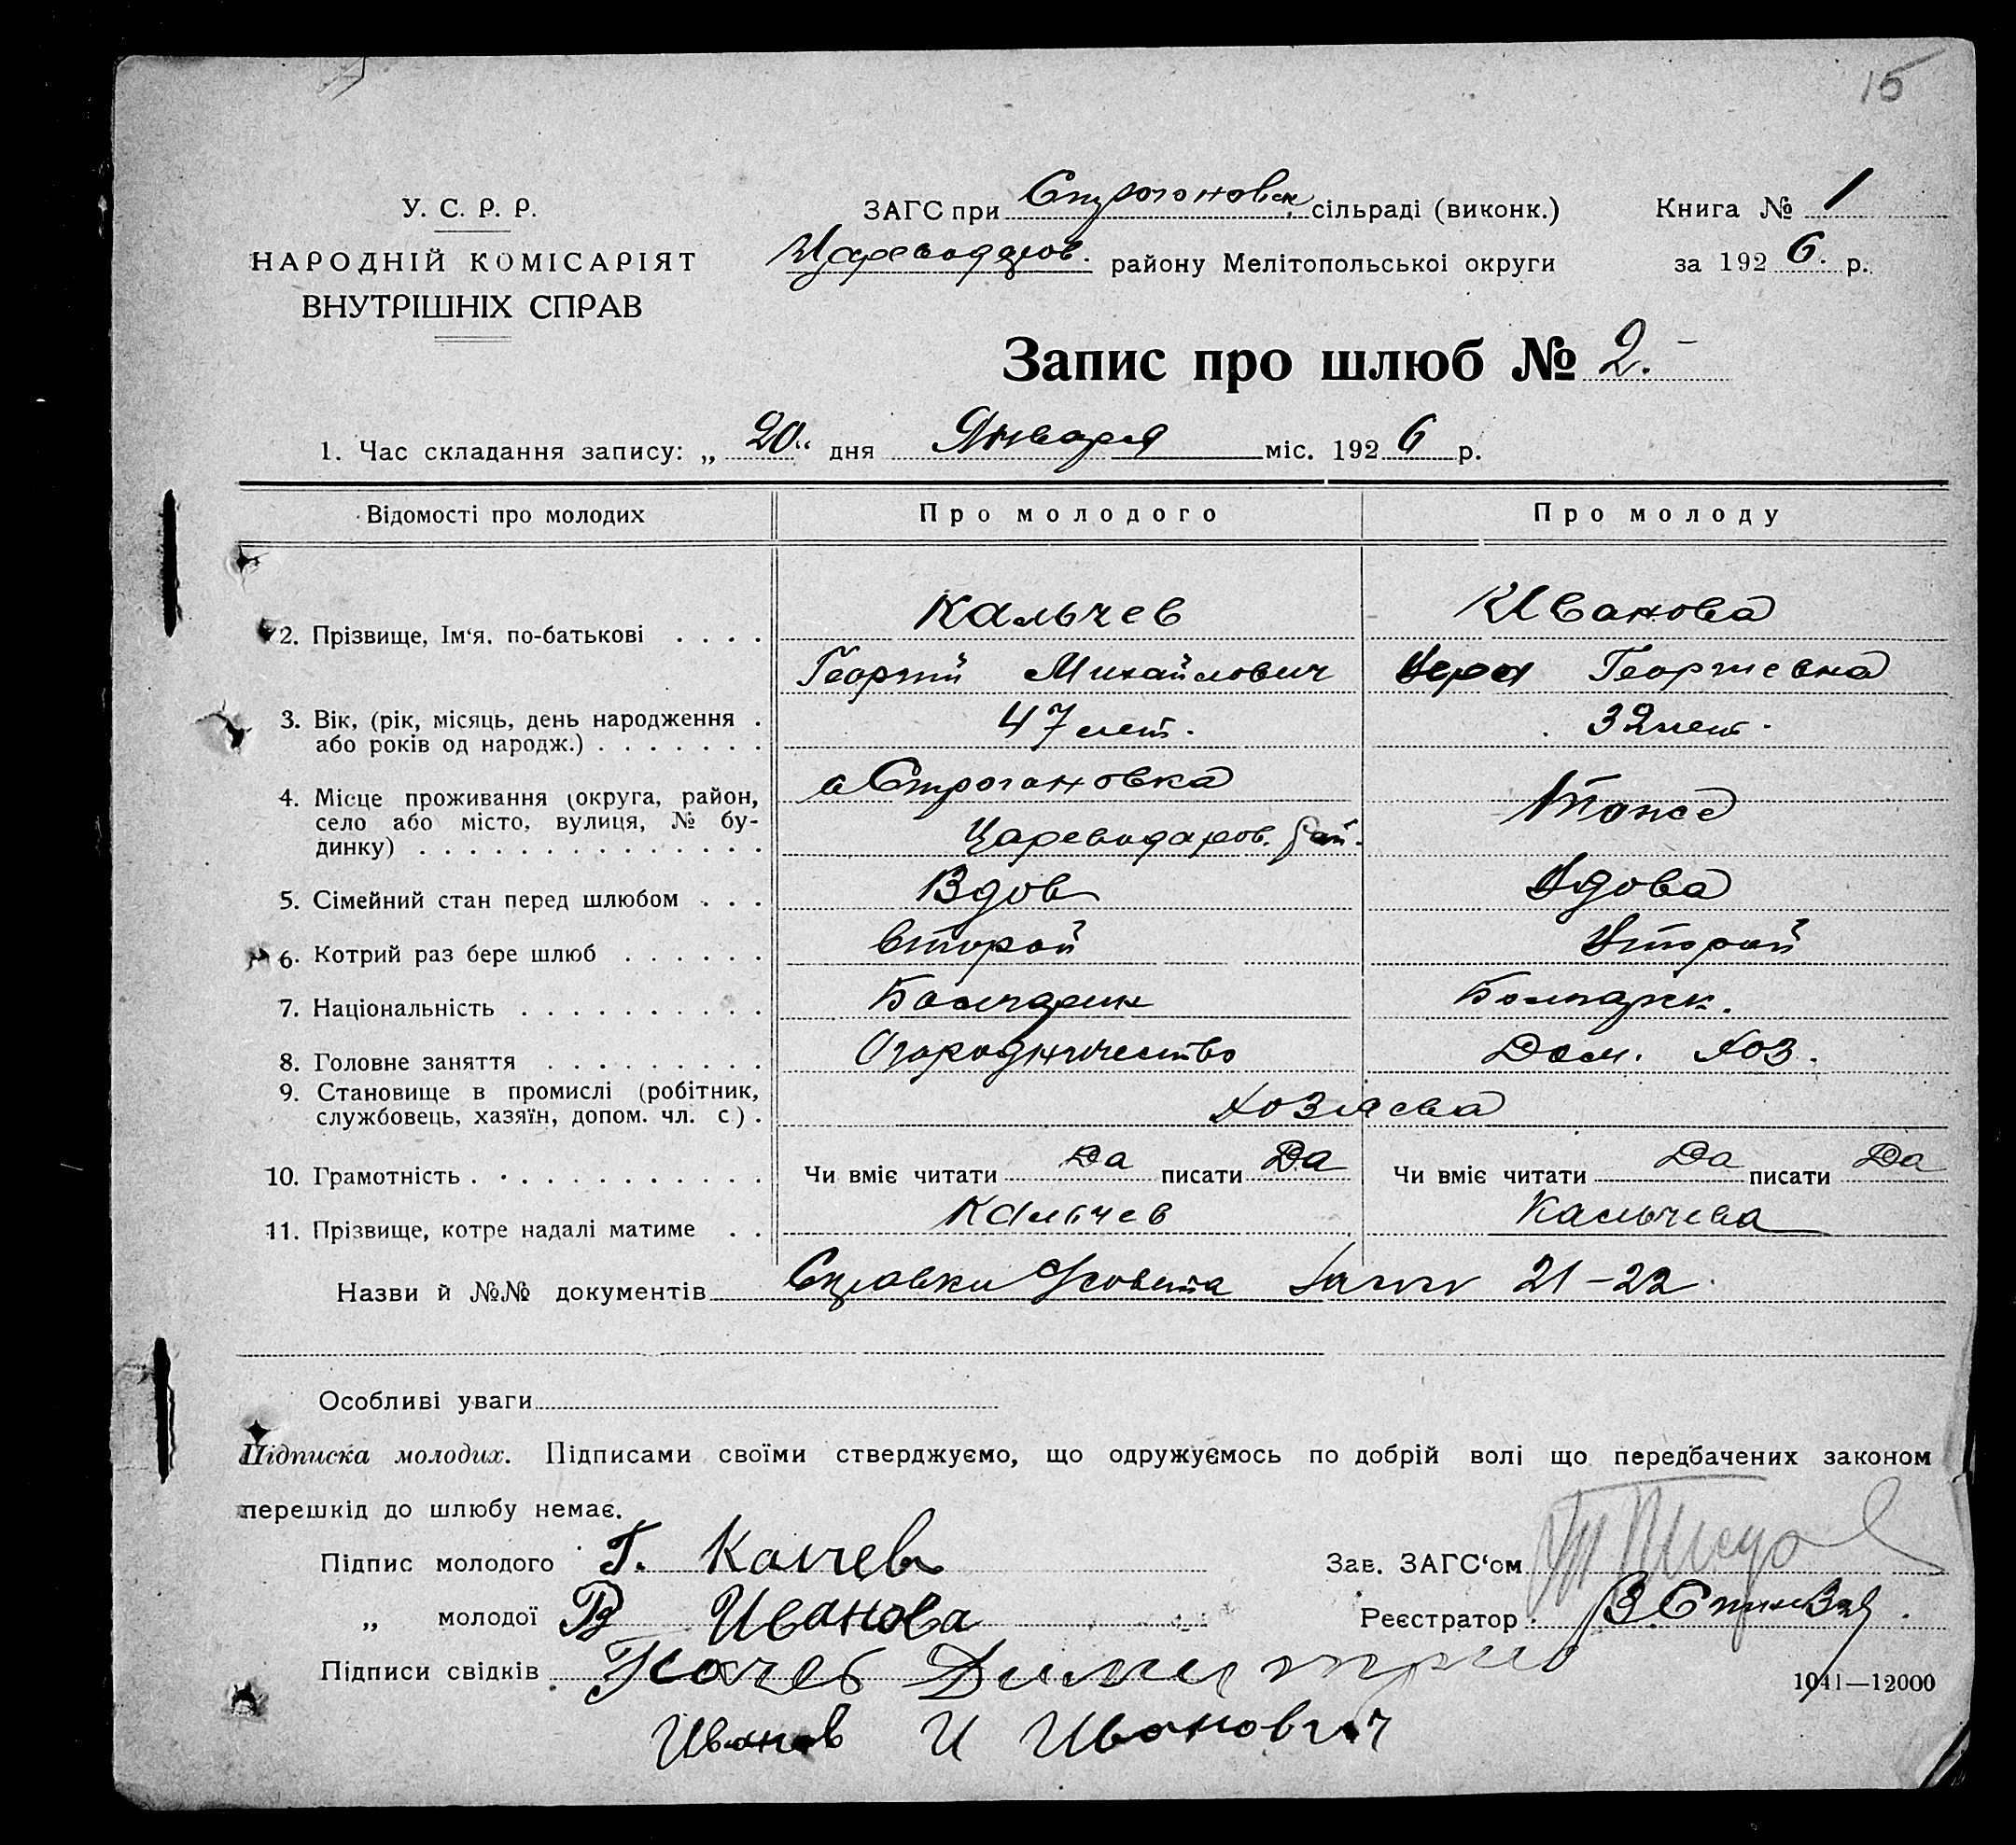 15
У. С. Р. Р.
НАРОДНІЙ КОМІСАРІЯТ
ВНУТРІШНІХ СПРАВ
ЗАГС при Строгоновск. сільраді (виконк.)
Книга № 1
Цареводаров. району Мелітопольськоі округи
за 1926. р.
Запис про шлюб № 2.-
1. Час складання запису: „ 20 " дня Января міс. 1926 р.
Відомості про молодих
Про молодого
Про молоду
2. Прізвище, Ім'я. по-батькові . . . .
Кальчев
Иванова
Георгий Михайлович
Вера Георгиевна
3. Вік, (рік, місяць, день народження .
або років од народж.) . . . . . . .
47 лет.
32 лет.
4. Місце проживання (округа, район,
село або місто, вулиця, № бу-
динку) . . . . . . . . . . . . . .
с Строгановка
Цареводаров. рай.
Тоже
5. Сімейний стан перед шлюбом . . .
Вдов
Вдова
6. Котрий раз бере шлюб . . . . . .
второй
Второй
7. Національність . . . . . . . . . .
Болгарин
Болгарк.
8. Головне заняття . . . . . . . . .
Огородничество
Дом. хоз.
9. Становище в промислі (робітник,
службовець, хазяїн, допом. чл. с) .
Хозяева
10. Грамотність . . . . . . . . . . . .
Чи вміє читати Да писати Да
Чи вміє читати Да писати Да
11. Прізвище, котре надалі матиме . .
Кальчев
Кальчева
Назви й №№ документів Справки 21-22.
Особливі уваги
Підписка молодих. Підписами своїми стверджуємо, що одружуємось по добрій волі що передбачених законом
перешкід до шлюбу немає.
Підпис молодого Г. Калчев
Зав. ЗАГС'ом
„ молодої В Иванова
Реєстратор
Підписи свідків
1041—12000
Иванов И Иванович